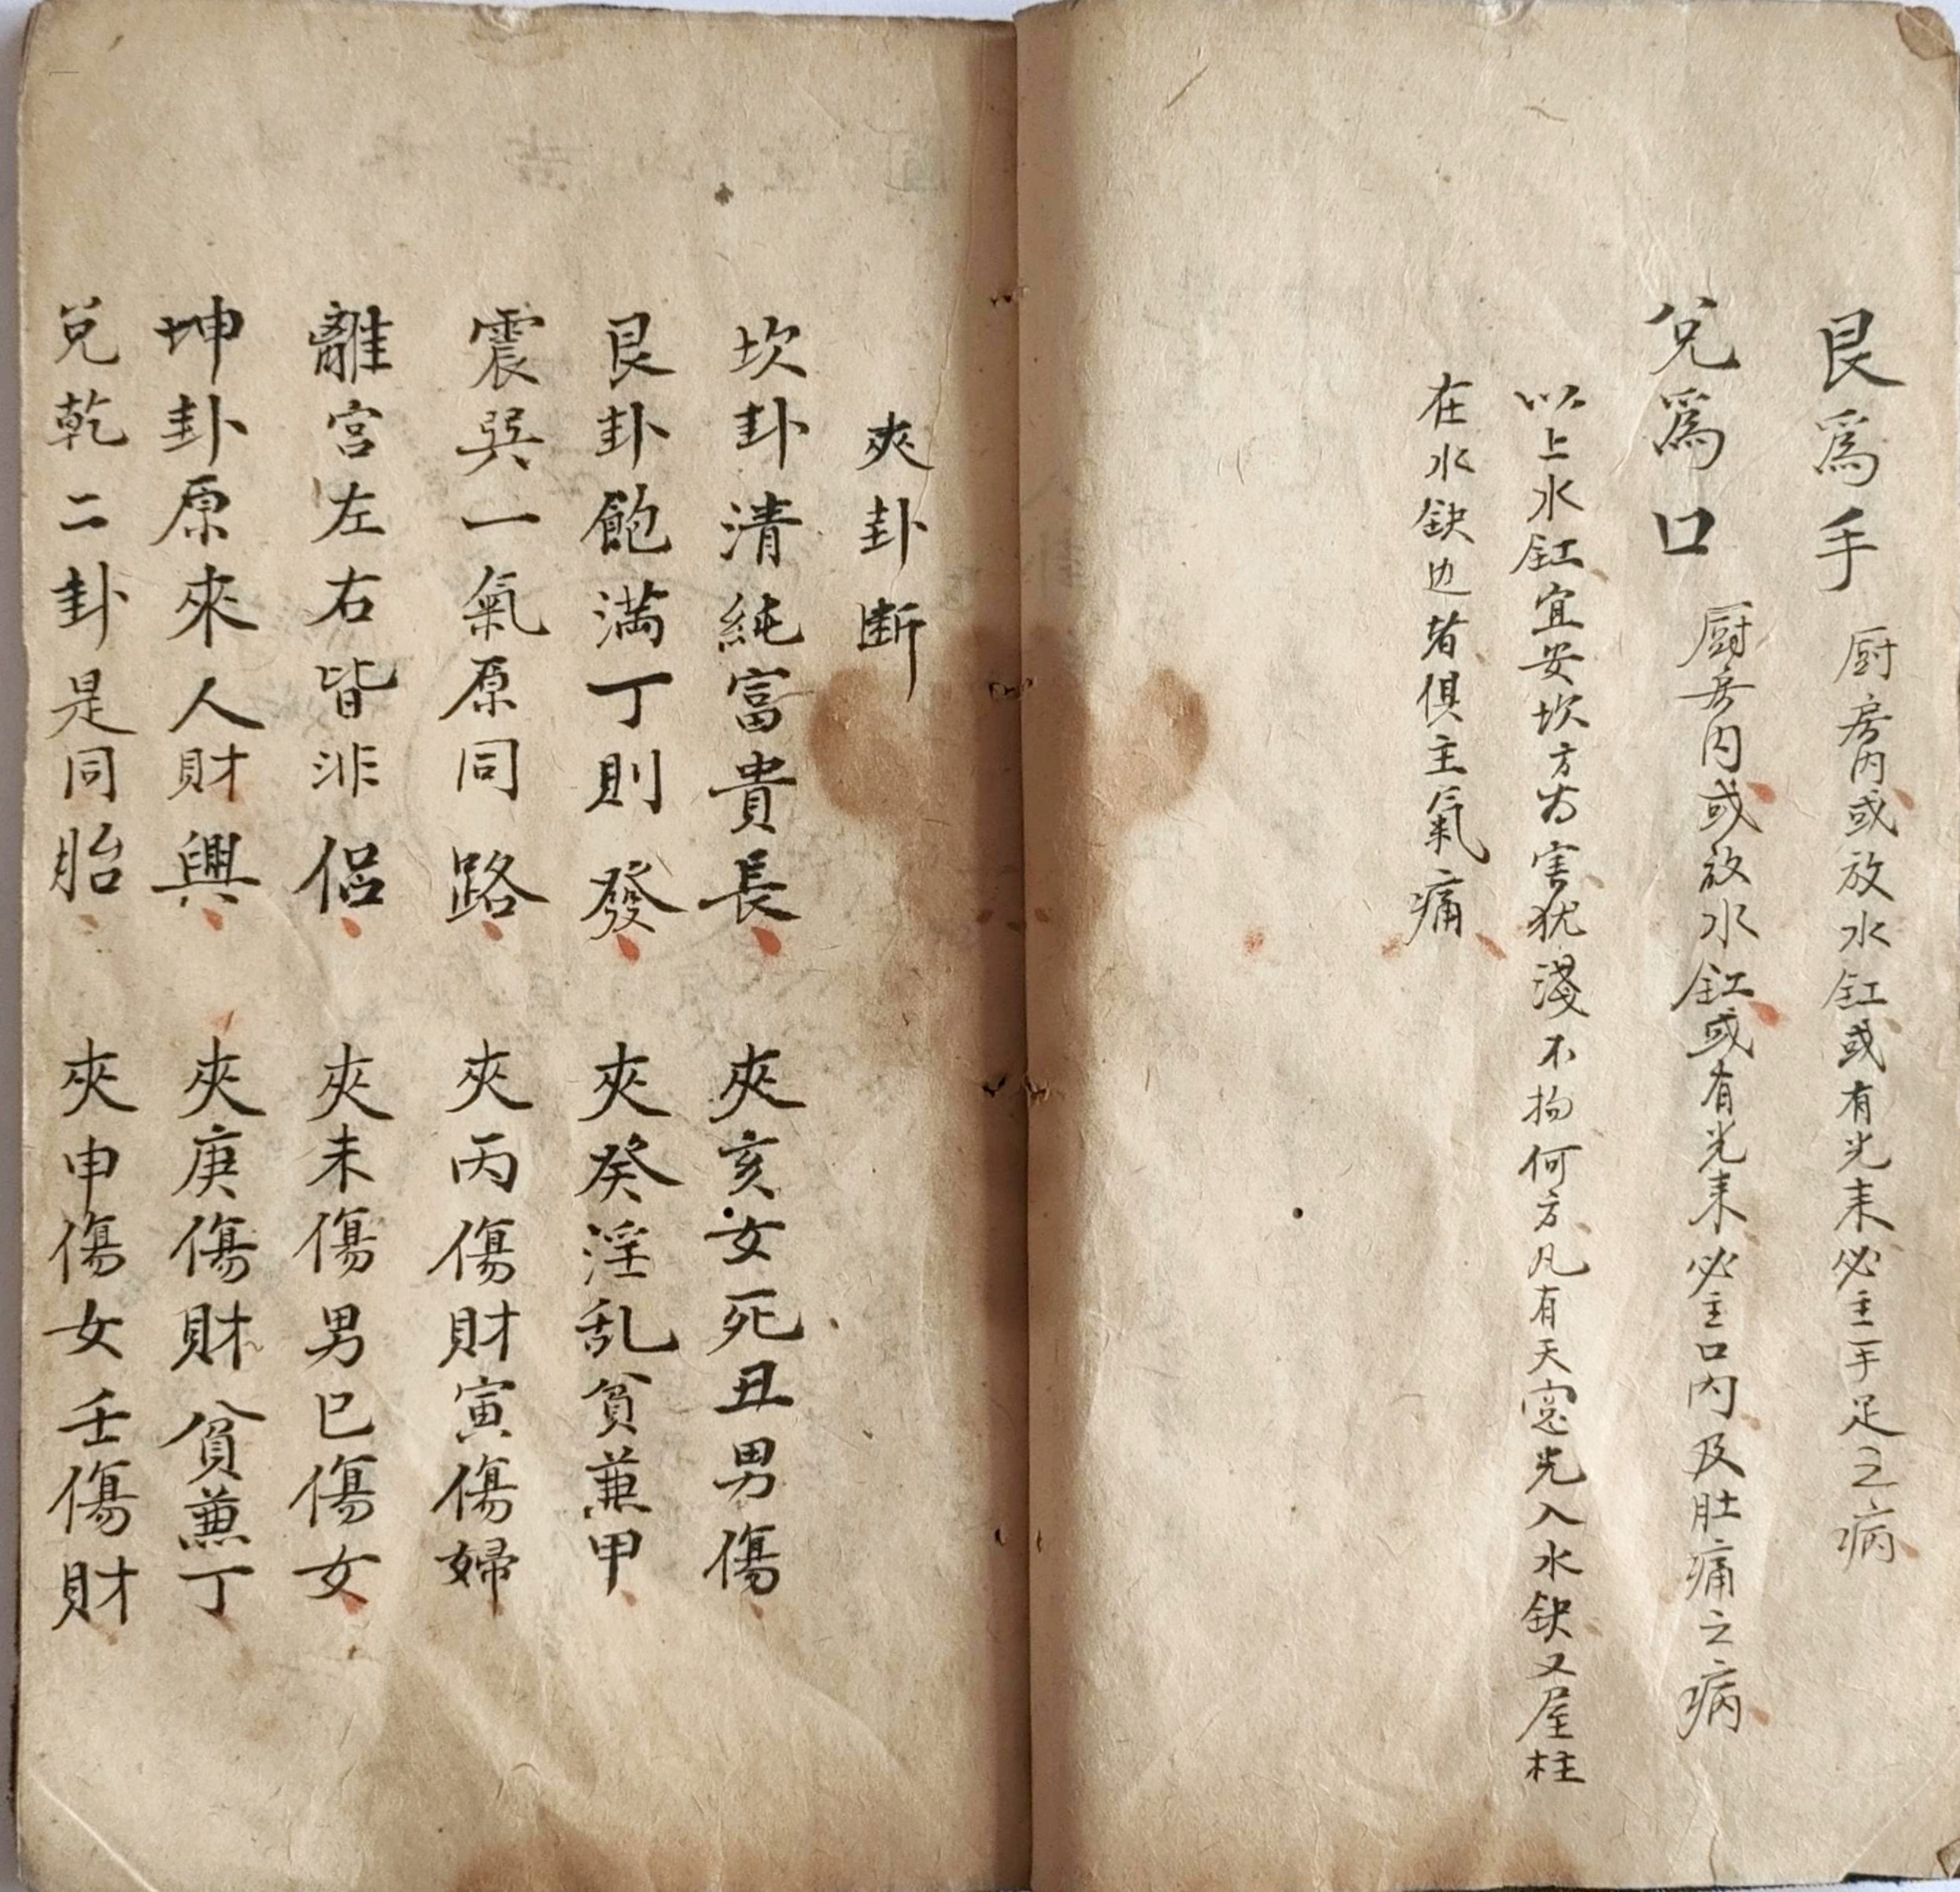 艮爲手 厨房内或放水缸或有光来必主手足之病
兌爲口 厨房内或放水缸或有光来必主口内及肚痛之病
以上水缸宜安坎方为害犹淺不拘何方凡有天窓光入水缺又屋柱
在水缺边者俱主氣痛
夾卦断
坎卦清純富貴長 夾亥女死丑男傷
艮卦飽満丁則發 夾癸淫乱貧兼甲
震巽一氣原同路 夾丙傷財寅傷婦
離宮左右皆非侣 夾未傷男巳傷女
坤卦原來人財興 夾庚傷財貧兼丁
兌乾二卦是同胎 夾申傷女壬傷財